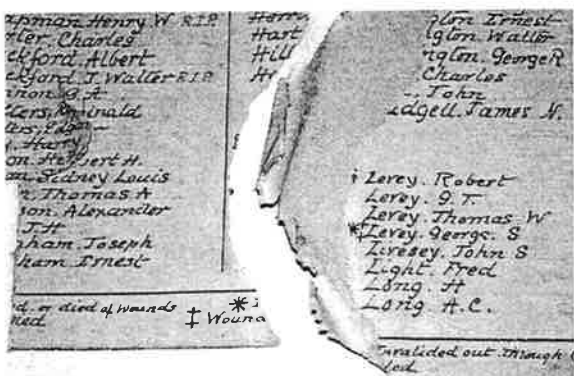 apman Henry W. R.I.P.
tler. Charles
ckford. Albert
ckford. J. Walter R.I.P.
nnon. G. A
ters. Reginald
ters. Edgar
Harry
on. Herbert H.
an. Sidney Louis
n. Thomas A
son. Alexander
J. H
gham. Joseph
ham. Ernest
d. or died of Wounds
ned
‡ Wound
Hart
Hill
gton Ernest
gton. Walter
ngton. George R
Charles
John
dgell. James N.
Levey. Robert
Levey. G. T.
Levey. Thomas W
Levey. George. S
Livesey. John S
Light. Fred
Long. H
Long. A.C.
Invalided out through
led